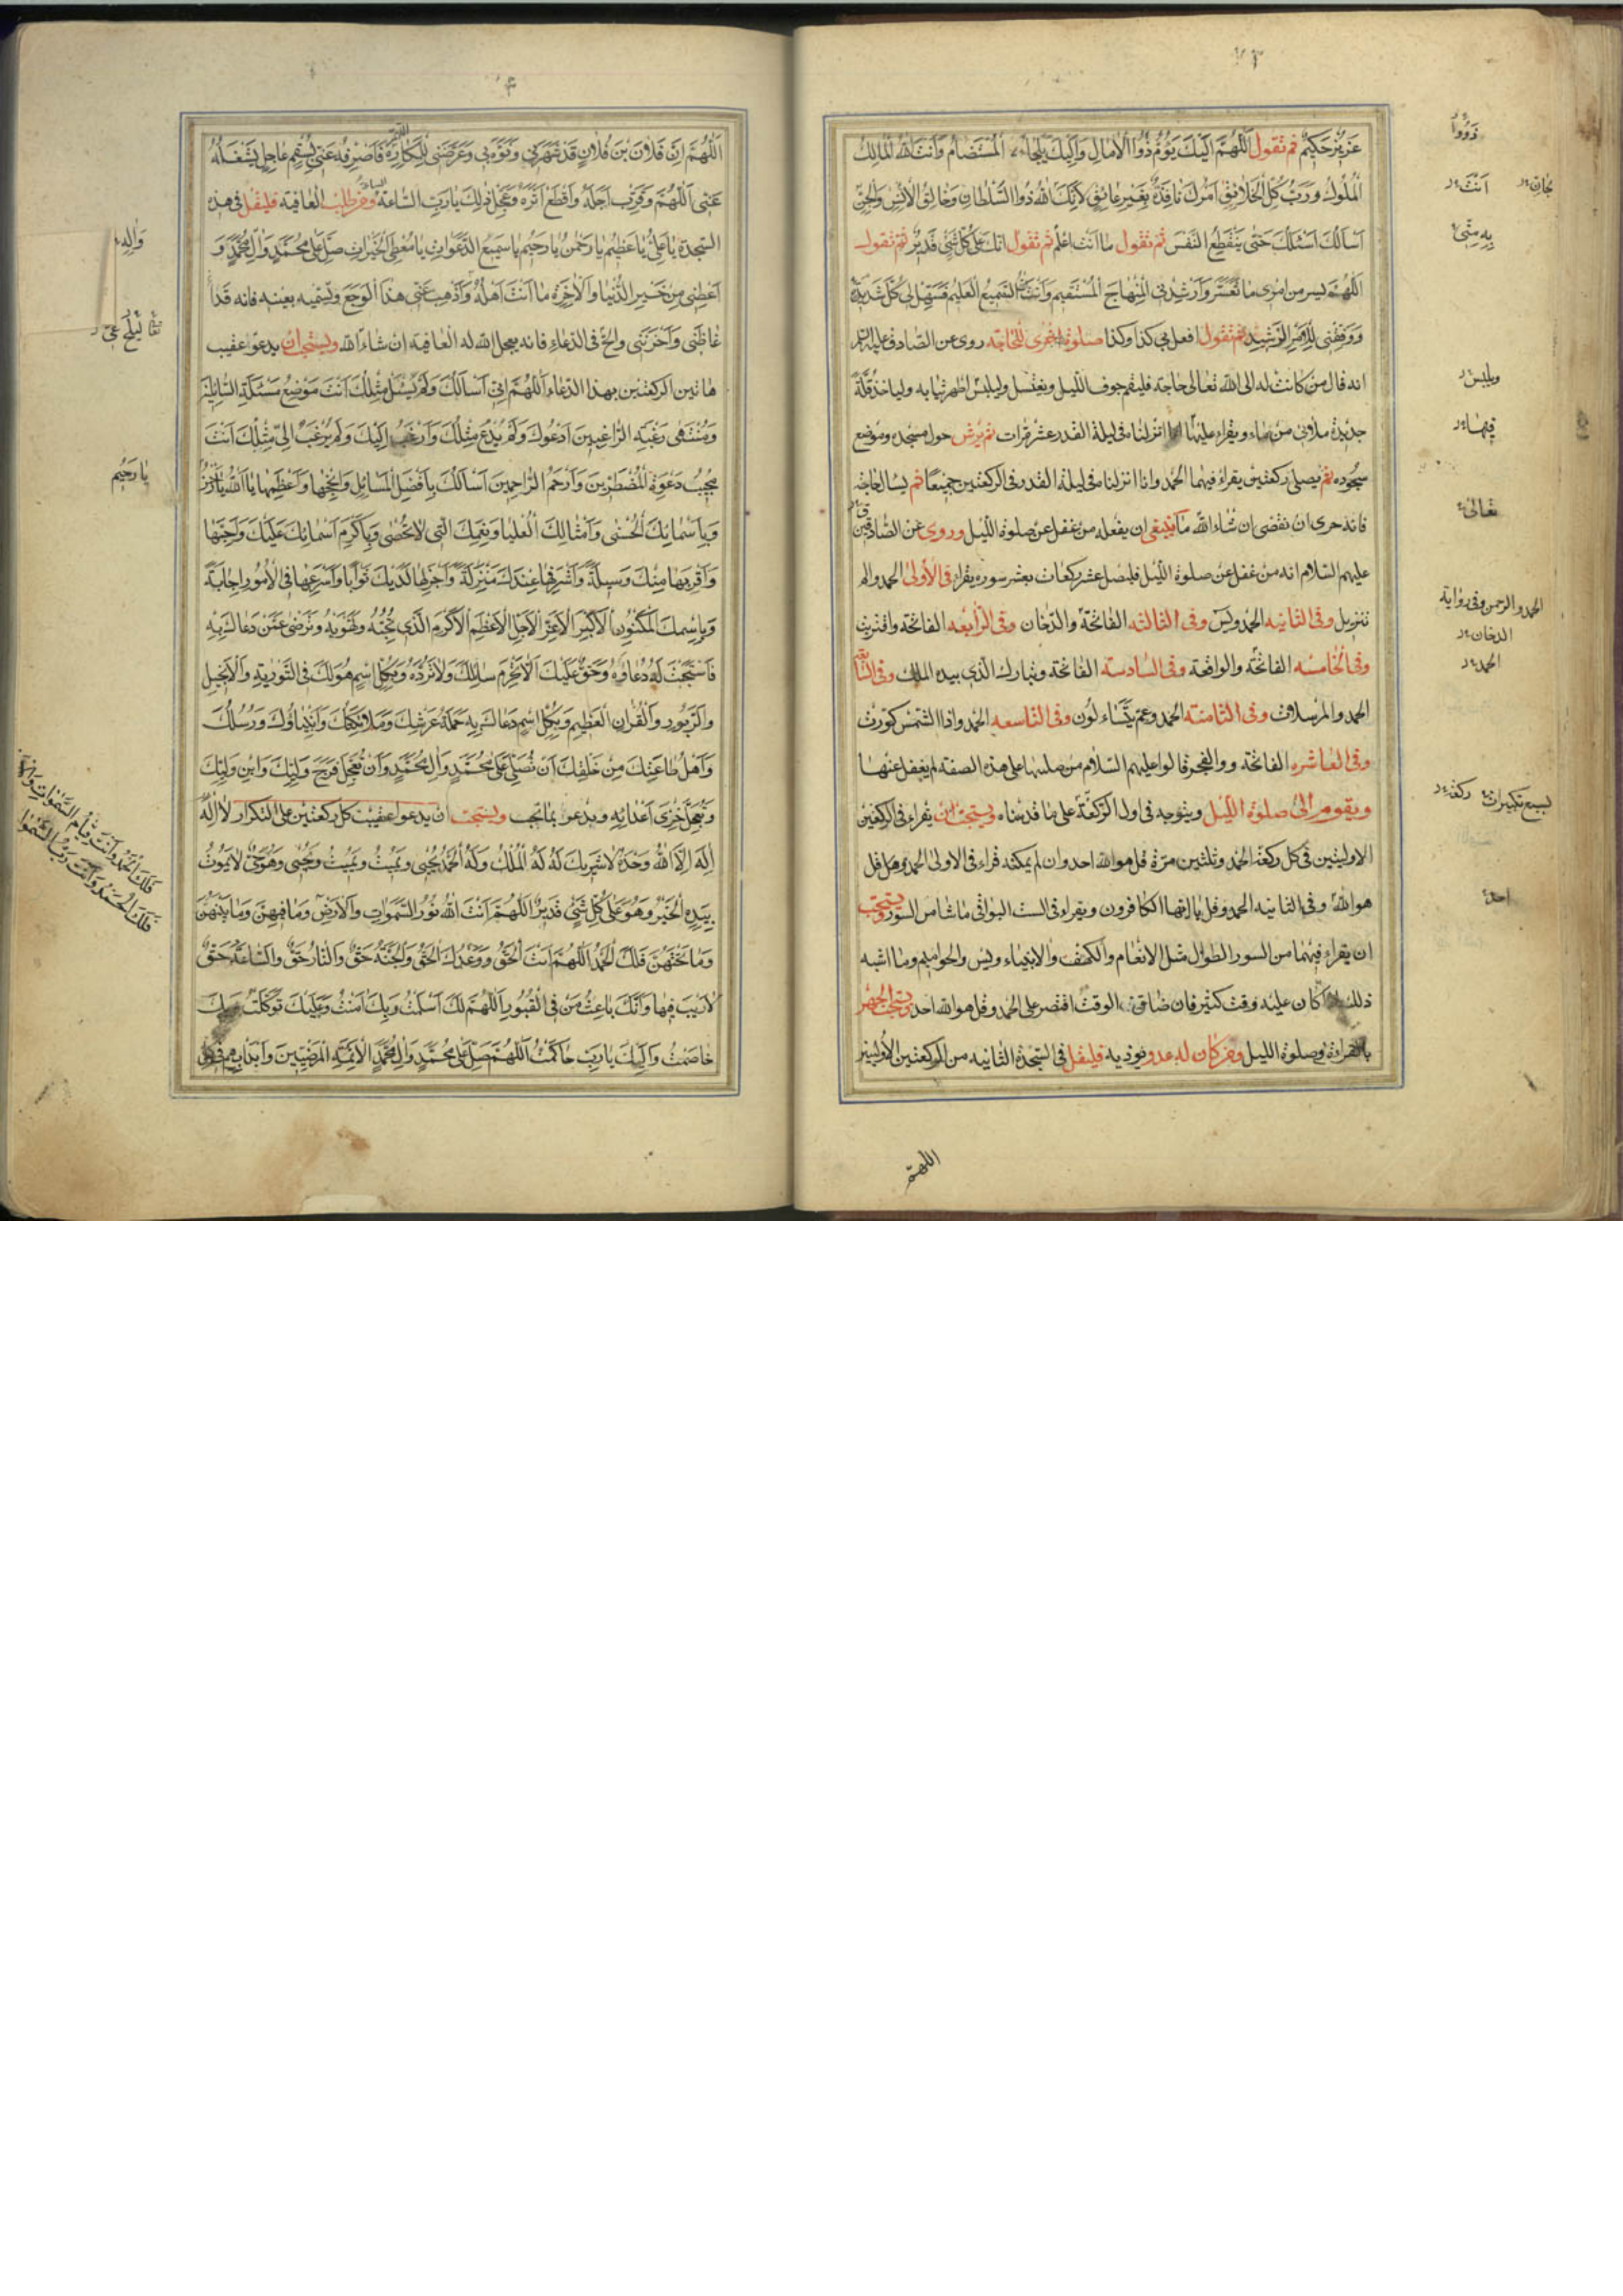 عَزِيزٌ حَكِيمٌ ثم تقول اَللّهُمَّ اِلَيْكَ يَؤُمُّ ذَوُوا الْاٰمَالِ وَاِلَيْكَ يَلْجَأُ الْمُسْتَضَامُ وَاَنْتَ اللهُ مَالِكُ
الْمُلُوكِ وَرَبُّ كُلِّ الْخَلَائِقِ اَمْرُكَ نَافِذٌ بِغَيْرِ عَائِقٍ لِاَنَّكَ اللهُ ذُو السُّلْطَانِ وَخَالِقُ الْاِنْسِ وَالْجِنِّ
اَسْأَلُكَ اَسْئَلُكَ حَتّٰى يَنْقَطِعَ النَّفَسُ ثم تقول ما انت اعلم ثم تقول انك على كل شئ قدير ثم تقول
اَللّهُمَّ يسر من امرى ما تعسر وارشدنى المنهاج المستقيم وانت السميع العليم فسهل لى كل شديد
ووفقنى للامر الرشيد ثم تقول افعل بى كذا وكذا صلوة اخرى للحاجة روى عن الصادق عليه السلام
انه قال من كانت له الى الله تعالى حاجة فليقم جوف الليل ويغتسل وليلبس اطهر ثيابه ولياخذ قلة
جديدة ملأى من ماء ويقراء عليها انا انزلناه فى ليلة القدر عشر مرات ثم يرش حول مسجده وموضع
سجوده ثم يصلى ركعتين يقراء فيهما الحمد وانا انزلناه فى ليلة القدر فى الركعتين جميعا ثم يسال حاجته
فانه حرى ان تقضى ان شاء الله ما ينبغى ان يفعله من غفل عن صلوة الليل وروى عن الصادقين
عليهم السلام انه من غفل عن صلوة الليل فليصل عشر ركعات بعشر سور يقراء فى الاولى الحمد والم
تنزيل وفى الثانيه الحمد ويس وفى الثالثه الفاتحة والدخان وفى الرابعه الفاتحة واقتربت
وفى الخامسه الفاتحة والواقعة وفى السادسة الفاتحة وتبارك الذى بيده الملك وفى السابعة
الحمد والمرسلات وفى الثامنة الحمد وعم يتساءلون وفى التاسعه الحمد واذا الشمس كورت
وفى العاشره الفاتحة ووالفجر قالوا عليهم السلام من صلاها على هذه الصفة لم يغفل عنها
ويقوم الى صلوة الليل ويتوجه فى اول الركعة على ما قدمناه ويستحب ان يقراء فى الركعتين
الاوليتين فى كل ركعة الحمد وثلثين مرة قل هو الله احد وان لم يمكنه قراء فى الاولى الحمد وقل
هو الله وفى الثانيه الحمد وقل يا ايها الكافرون ويقراء فى الست البواقى ما شاء من السور ويستحب
ان يقراء فيهما من السور الطوال مثل الانعام والكهف والانبياء ويس والحواميم وما اشبه
ذلك اذا كان عليه وقت كثير فان ضاق الوقت اقتصر على الحمد وقل هو الله احد ويستحب الجهر
بالقراءة فى صلوة الليل ومن كان له عدو يوذيه فليقل فى السجدة الثانيه من الركعتين الاوليتين
ذَوُوا
اَنْتَ
بِهِ مِنّى
ويلبس
فيهما
تعالى
الحمد والرحمن وفى رواية
الدخان
الحمد
بسبع تكبيرات ركعة
احد
اللهم
اَللّهُمَّ اِنَّ فُلَانَ بْنَ فُلَانٍ قَدْ شَهَرَنِى وَنَوَّهَ بِى وَعَرَّضَنِى لِلْمَكَارِهِ فَاصْرِفْهُ عَنِّى بِسُقْمٍ عَاجِلٍ يَشْغَلُهُ
عَنِّى اَللّهُمَّ وَقَرِّبْ اَجَلَهُ وَاقْطَعْ اَثَرَهُ وَعَجِّلْ ذٰلِكَ يَا رَبِّ السَّاعَةَ ومن طلب العافية فليقل فى هذه
السجدة يَا عَلِىُّ يَا عَظِيمُ يَا رَحْمٰنُ يَا رَحِيمُ يَا سَمِيعَ الدَّعَوَاتِ يَا مُعْطِىَ الْخَيْرَاتِ صَلِّ عَلٰى مُحَمَّدٍ وَاٰلِ مُحَمَّدٍ وَ
اَعْطِنِى مِنْ خَيْرِ الدُّنْيَا وَالْاٰخِرَةِ مَا اَنْتَ اَهْلُهُ وَاَذْهِبْ عَنِّى هٰذَا الْوَجَعَ وتسميه بعينه فانه قد
غَاظَنِى وَاَحْزَنَنِى والح فى الدعاء فانه يعجل الله له العافية ان شاء الله ويستحب ان يدعو عقيب
هاتين الركعتين بهذا الدعاء اَللّهُمَّ اِنِّى اَسْاَلُكَ وَلَمْ يُسْئَلْ مِثْلُكَ اَنْتَ مَوْضِعُ مَسْئَلَةِ السَّائِلِينَ
وَمُنْتَهٰى رَغْبَةِ الرَّاغِبِينَ اَدْعُوكَ وَلَمْ يُدْعَ مِثْلُكَ وَاَرْغَبُ اِلَيْكَ وَلَمْ يُرْغَبْ اِلٰى مِثْلِكَ اَنْتَ
مُجِيبُ دَعْوَةِ الْمُضْطَرِّينَ وَاَرْحَمُ الرَّاحِمِينَ اَسْاَلُكَ بِاَفْضَلِ الْمَسَائِلِ وَاَنْجَحِهَا وَاَعْظَمِهَا يَا اَللهُ يَا رَحْمٰنُ
وَبِاَسْمَائِكَ الْحُسْنٰى وَاَمْثَالِكَ الْعُلْيَا وَنِعَمِكَ الَّتِى لَا تُحْصٰى وَبِاَكْرَمِ اَسْمَائِكَ عَلَيْكَ وَاَحَبِّهَا
وَاَقْرَبِهَا مِنْكَ وَسِيلَةً وَاَشْرَفِهَا عِنْدَكَ مَنْزِلَةً وَاَجْزَلِهَا لَدَيْكَ ثَوَابًا وَاَسْرَعِهَا فِى الْاُمُورِ اِجَابَةً
وَبِاسْمِكَ الْمَكْنُونِ الْاَكْبَرِ الْاَعَزِّ الْاَجَلِّ الْاَعْظَمِ الْاَكْرَمِ الَّذِى تُحِبُّهُ وَتَهْوَاهُ وَتَرْضٰى عَمَّنْ دَعَاكَ بِهِ
فَاسْتَجَبْتَ لَهُ دُعَاؤَهُ وَحَقٌّ عَلَيْكَ اَلَّا تَحْرِمَ سَائِلَكَ وَلَا تَرُدَّهُ وَبِكُلِّ اسْمٍ هُوَ لَكَ فِى التَّوْرٰيةِ وَالْاِنْجِيلِ
وَالزَّبُورِ وَالْقُرْاٰنِ الْعَظِيمِ وَبِكُلِّ اسْمٍ دَعَاكَ بِهِ حَمَلَةُ عَرْشِكَ وَمَلَائِكَتُكَ وَاَنْبِيَاؤُكَ وَرُسُلُكَ
وَاَهْلُ طَاعَتِكَ مِنْ خَلْقِكَ اَنْ تُصَلِّىَ عَلٰى مُحَمَّدٍ وَاٰلِ مُحَمَّدٍ وَاَنْ تُعَجِّلَ فَرَجَ وَلِيِّكَ وَابْنِ وَلِيِّكَ
وَتُعَجِّلَ خِزْىَ اَعْدَائِهِ ويدعو بما تحب ويستحب ان يدعو عقيب كل ركعتين على التكرار لَا اِلٰهَ
اِلٰهَ اِلَّا اللهُ وَحْدَهُ لَا شَرِيكَ لَهُ لَهُ الْمُلْكُ وَلَهُ الْحَمْدُ يُحْيِى وَيُمِيتُ وَيُمِيتُ وَيُحْيِى وَهُوَ حَىٌّ لَا يَمُوتُ
بِيَدِهِ الْخَيْرُ وَهُوَ عَلٰى كُلِّ شَىْءٍ قَدِيرٌ اَللّهُمَّ اَنْتَ اللهُ نُورُ السَّمٰوَاتِ وَالْاَرْضِ وَمَا فِيهِنَّ وَمَا بَيْنَهُنَّ
وَمَا تَحْتَهُنَّ فَلَكَ الْحَمْدُ اَللّهُمَّ اَنْتَ الْحَقُّ وَوَعْدُكَ الْحَقُّ وَالْجَنَّةُ حَقٌّ وَالنَّارُ حَقٌّ وَالسَّاعَةُ حَقٌّ
لَا رَيْبَ فِيهَا وَاَنَّكَ بَاعِثُ مَنْ فِى الْقُبُورِ اَللّهُمَّ لَكَ اَسْلَمْتُ وَبِكَ اٰمَنْتُ وَعَلَيْكَ تَوَكَّلْتُ وَبِكَ
خَاصَمْتُ وَاِلَيْكَ يَا رَبِّ حَاكَمْتُ اَللّهُمَّ صَلِّ عَلٰى مُحَمَّدٍ وَاٰلِ مُحَمَّدٍ الْاَئِمَّةِ الْمَرْضِيِّينَ وَابْدَأْ بِهِمْ فِى كُلِّ
وَاٰلِهِ
يَا رَحِيمُ
فَلَكَ الْحَمْدُ وَاَنْتَ قِيَامُ السَّمٰوَاتِ وَالْاَرْضِ
فَلَكَ الْحَمْدُ وَاَنْتَ رَبُّ السَّمٰوَا